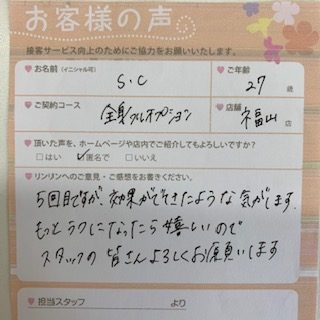 お客様の声
接客サービス向上のためにご協力をお願いいたします。
お名前(イニシャル可) ご年齢
S.C 27 歳
ご契約コース 店舗
全身フルオプション 福山 店
頂いた声を、ホームページや店内でご紹介してもよろしいですか?
□はい ☑匿名で □いいえ
リンリンへのご意見・ご感想をお書きください。
5回目ですが、効果がでてきたような気がします。
もっとラクになったら嬉しいので
スタッフの皆さんよろしくお願いします
担当スタッフ より